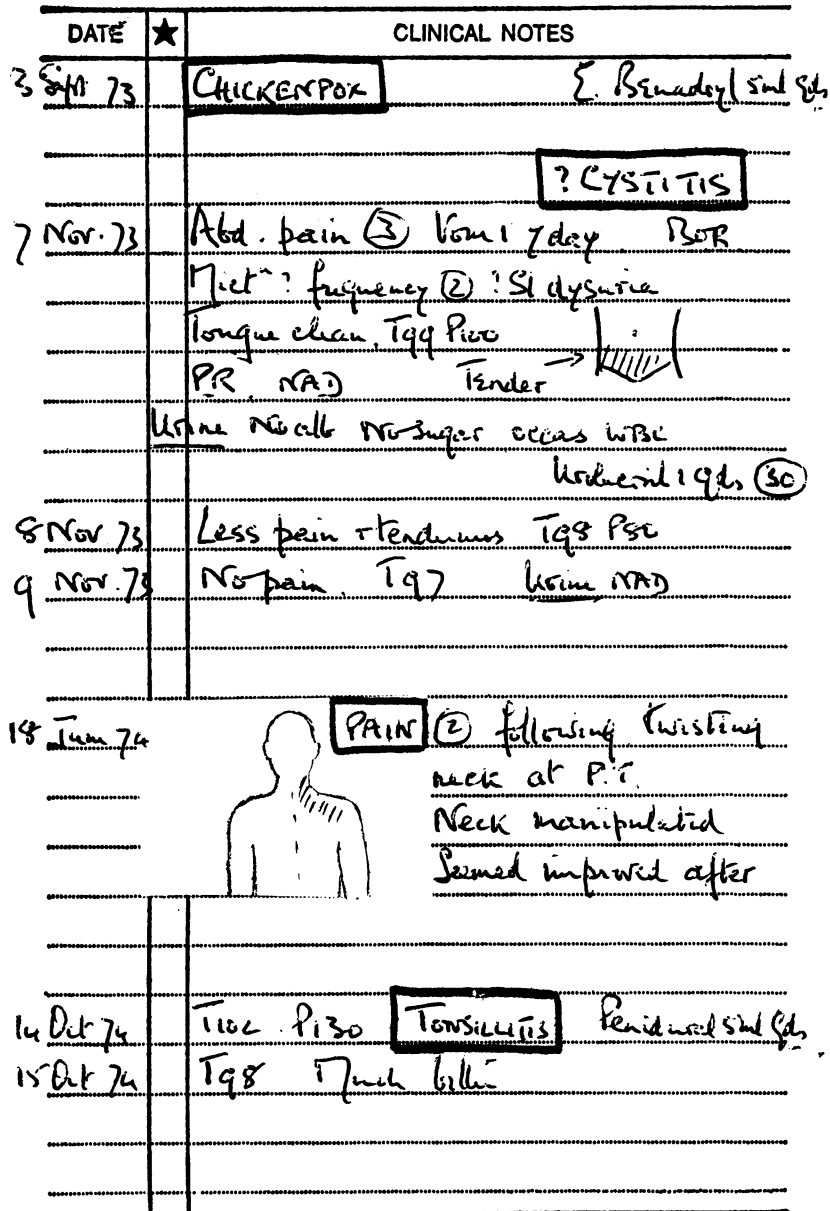 DATE ★ CLINICAL NOTES
3 Sept 73 CHICKENPOX Σ. Benadryl 5ml Qds
? CYSTITIS
7 Nov. 73 Abd. pain ③ Vom 1 7day BOR
Mict ? frequency ② ? Sl dysuria
Tongue clean, T99 P100
PR NAD Tender →
Urine No alb No sugar occas WBC
1 qds (30)
8 Nov 73 Less pain + tenderness T98 P80
9 Nov. 73 No pain. T97 Urine NAD
18 Jun 74 PAIN ② following twisting
neck at P.T.
Neck manipulated
Seemed improved after
14 Oct 74 T102 P130 TONSILLITIS 5ml Qds
15 Oct 74 T98 Much better